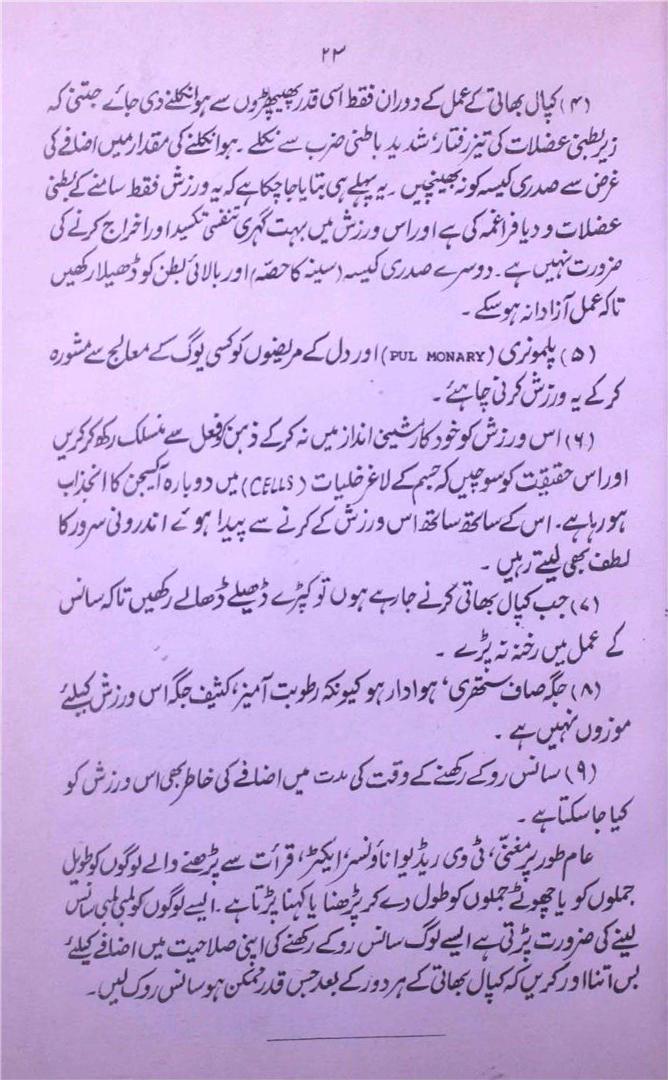 ۲۳
(۴) کپال بھاتی کے عمل کے دوران فقط اسی قدر پھیپھڑوں سے ہوا نکلنے دی جائے جتنی کہ
زیر بطنی عضلات کی تیز رفتار، شدید باطنی ضرب سے نکلے۔ ہوا نکلنے کی مقدار میں اضافے کی
غرض سے صدری کیسہ کو نہ بھینچیں۔ یہ پہلے ہی بتایا جا چکا ہے کہ یہ ورزش فقط سامنے کے بطنی
عضلات و دیافراغمہ کی ہے اور اس ورزش میں بہت گہری تنفسی تکسید اور اخراج کرنے کی
ضرورت نہیں ہے۔ دوسرے صدری کیسہ (سینہ کا حصّہ) اور بالائی بطن کو ڈھیلا رکھیں
تاکہ عمل آزادانہ ہو سکے۔
(۵) پلمونری (PUL MONARY) اور دل کے مریضوں کو کسی یوگ کے معالج سے مشورہ
کر کے یہ ورزش کرنی چاہئے۔
(۶) اس ورزش کو خود کار مشینی انداز میں نہ کر کے ذہن کو فعل سے منسلک رکھ کر کریں
اور اس حقیقت کو سوچیں کہ جسم کے لاغر خلیات (CELLS) میں دوبارہ آکسیجن کا انجذاب
ہو رہا ہے۔ اس کے ساتھ ساتھ اس ورزش کے کرنے سے پیدا ہوئے اندرونی سرور کا
لطف بھی لیتے رہیں۔
(۷) جب کپال بھاتی کرنے جا رہے ہوں تو کپڑے ڈھیلے ڈھالے رکھیں تاکہ سانس
کے عمل میں رخنہ نہ پڑے۔
(۸) جگہ صاف ستھری، ہوادار ہو کیونکہ رطوبت آمیز، کثیف جگہ اس ورزش کیلئے
موزوں نہیں ہے۔
(۹) سانس روکے رکھنے کے وقت کی مدت میں اضافے کی خاطر بھی اس ورزش کو
کیا جا سکتا ہے۔
عام طور پر مغنّی، ٹی وی ریڈیو اناؤنسر، ایکٹر، قرأت سے پڑھنے والے لوگوں کو طویل
جملوں کو یا چھوٹے جملوں کو طول دے کر پڑھنا یا کہنا پڑتا ہے۔ ایسے لوگوں کو لمبی لمبی سانس
لینے کی ضرورت پڑتی ہے ایسے لوگ سانس روکے رکھنے کی اپنی صلاحیت میں اضافے کیلئے
بس اتنا اور کریں کہ کپال بھاتی کے ہر دور کے بعد جس قدر ممکن ہو سانس روک لیں۔